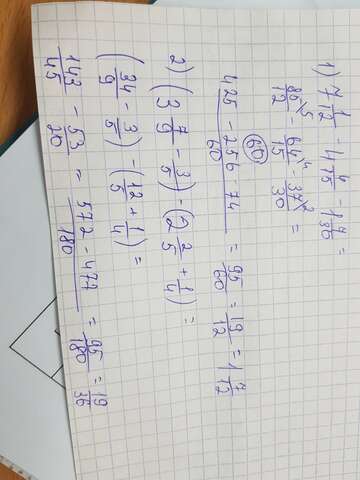 1) 7 1/12 - 4 4/15 - 1 7/30 =
85/12 \5 - 64/15 \4 - 37/30 \2 =
60
425 - 256 - 74 / 60 = 95/60 = 19/12 = 1 7/12
2) (3 7/9 - 3/5) - (2 2/5 + 1/4) =
(34/9 - 3/5) - (12/5 + 1/4) =
143/45 - 53/20 = 572 - 477 / 180 = 95/180 = 19/36